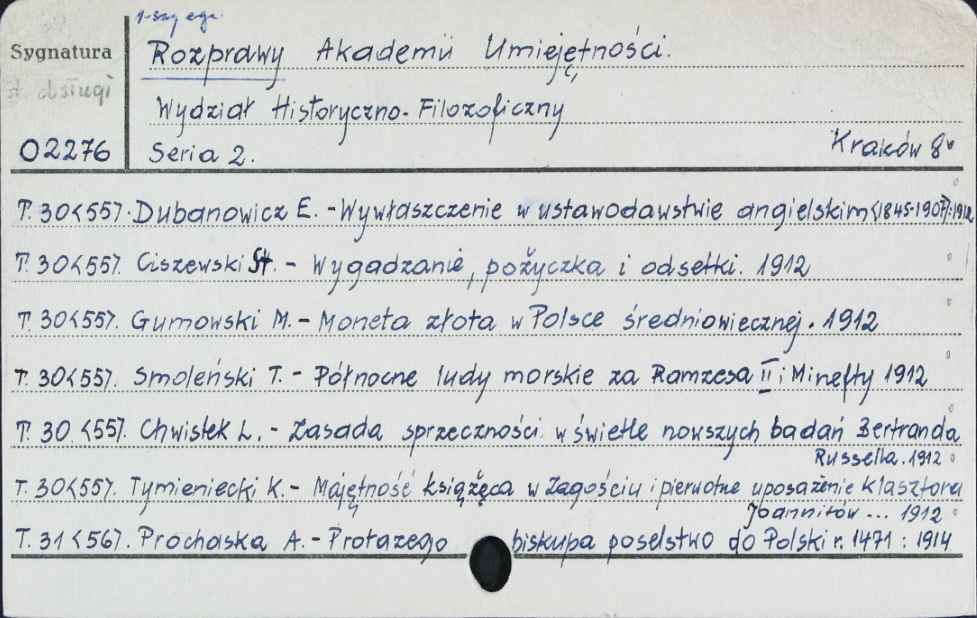 1-szy egz.
Sygnatura
Rozprawy Akademii Umiejętności.
Wydział Historyczno-Filozoficzny
02276
Seria 2.
Kraków 8°
T. 30<55>. Dubanowicz E. - Wywłaszczenie w ustawodawstwie angielskim <1845-1907>: 1912
T. 30<55>. Ciszewski St. - Wygadzanie, pożyczka i odsetki. 1912
T. 30<55>. Gumowski M. - Moneta złota w Polsce średniowiecznej. 1912
T. 30<55>. Smoleński T. - Północne ludy morskie za Ramzesa II i Minefty 1912
T. 30 <55>. Chwistek L. - Zasada sprzeczności w świetle nowszych badań Bertranda
Russella. 1912
T. 30<55>. Tymieniecki K. - Majętność książęca w Zagościu i pierwotne uposażenie klasztoru
Joannitów ... 1912
T. 31 <56>. Prochaska A. - Protazego biskupa poselstwo do Polski r. 1471 : 1914